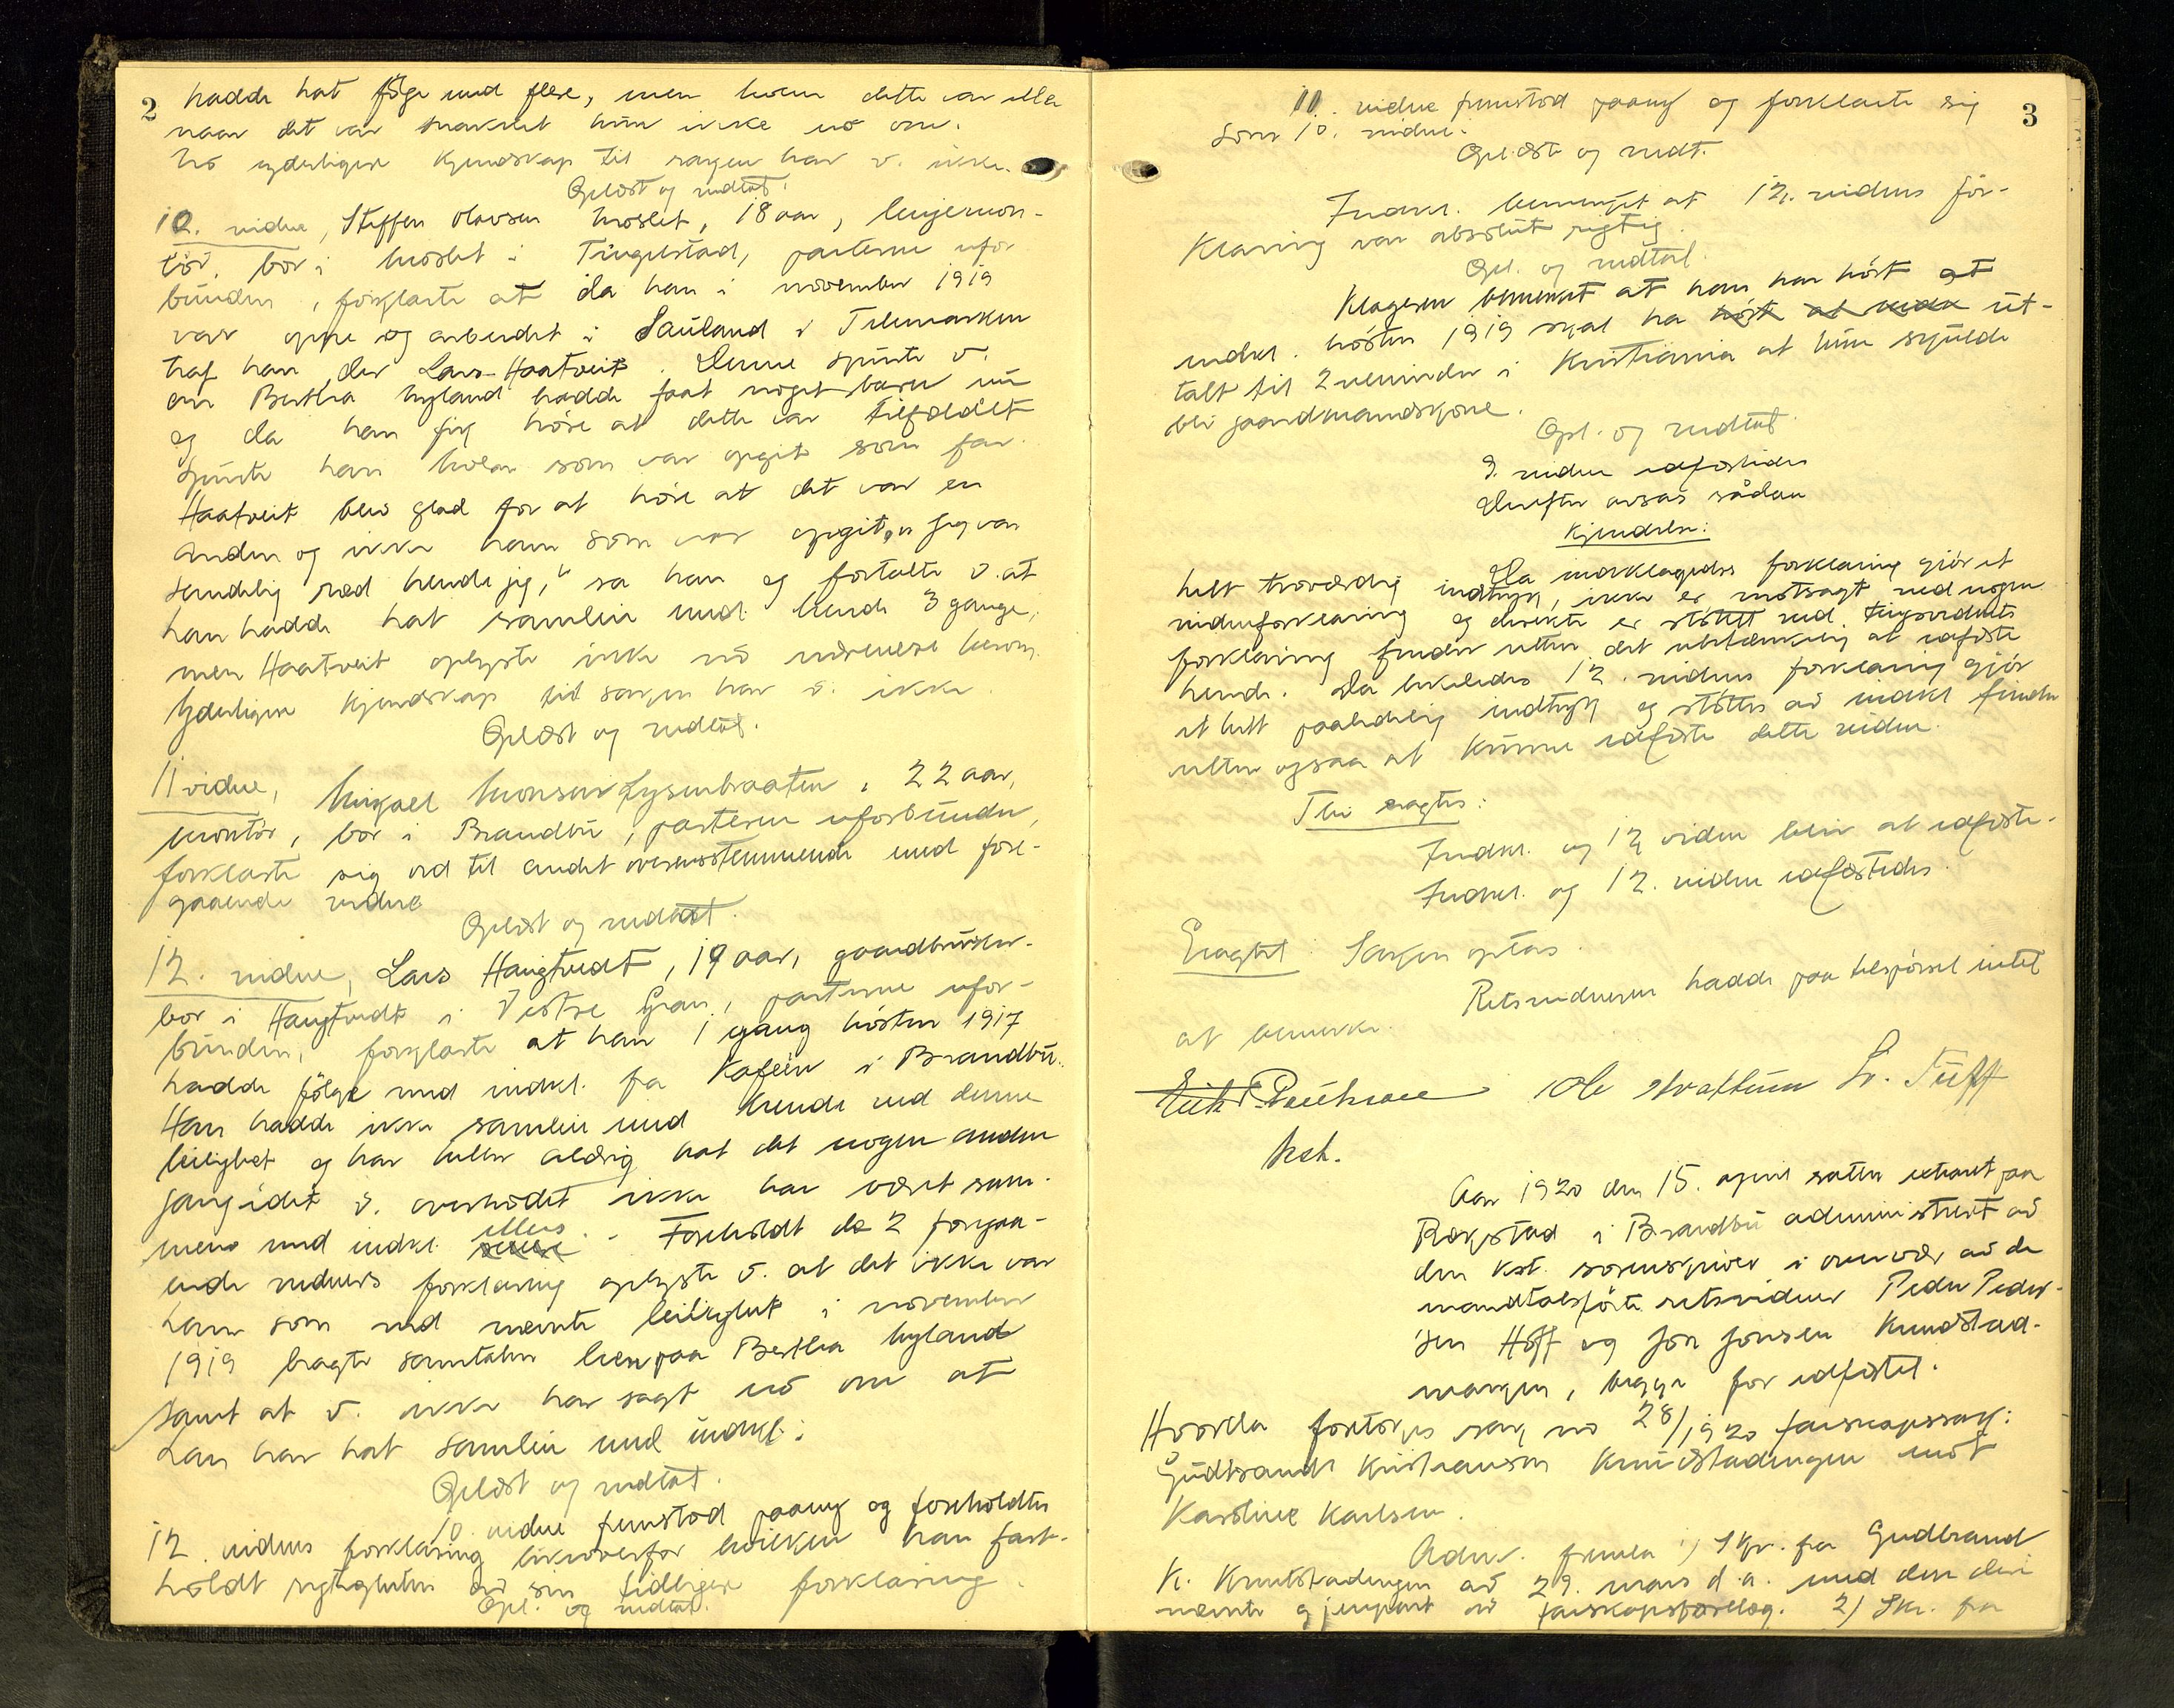 2
hadde hat følge med flere, men hvem dette var eller
naar det var husket hun ikke nå om.
No yderligere kjendskap til sagen har v. ikke.
Oplæst og vedtat.
10. vidne, Steffen Olavsen Moslet, 18 aar, linjemon-
tør, bor i Moslet i Tingelstad, parterne ufor
bunden, forklarte at da han i november 1919
var oppe og arbeidet i Sauland i Telemarken
traf han der Lars Haatveit. Denne spurte v.
om Bertha Myland hadde faat noget barn nu
og da han fik høre at dette var tilfældet
spurte han hvem som var opgit som far.
Haatveit blev glad for at høre at det var en
anden og ikke ham som var opgit, „Jeg var
sandelig ræd hende jeg," sa han og fortalte v. at
han hadde hat samleie med hende 3 gange,
men Haatveit oplyste ikke nå nærmere herom.
Yderligere kjendskap til sagen har v. ikke.
Oplæst og vedtat.
11 vidne, Mikael Monsen Lysenbraaten, 22 aar,
montør, bor i Brandbu, parterne uforbunden,
forklarte sig ord til andet overensstemmende med fore-
gaaende vidne
Oplæst og vedtat.
12. vidne, Lars Haugtvedt, 19 aar, gaardbruker-
bor i Haugtvedt i Vestre Gran, parterne ufor-
bunden, forklarte at han 1 gang høsten 1917
hadde følge med indkl. fra Kafeen i Brandbu.
Han hadde ikke samleie med hende ved denne
leilighet og har heller aldrig hat det nogen anden
gang idet v. overhodet ikke har været sam-
men med indkl. ellers. - Foreholdt de 2 forgaa-
ende vidners forklaring oplyste v. at det ikke var
ham som ved nævnte leilighet i november
1919 bragte samtalen hen paa Bertha Myland
samt at v. ikke har sagt nå om at
han har hat samleie med indkl.
Oplæst og vedtat.
10. vidne fremstod paany og foreholdtes
12. vidnes forklaring likeoverfor hvilken han fast-
holdt rigtigheten av sin tidligere forklaring.
Opl. og vedtat.
3
11. vidne fremstod paany og forklarte sig
som 10. vidne.
Oplæst og vedt.
Indkl. bemerket at 12. vidnes for-
klaring var absolut rigtig.
Opl. og vedtat.
Klageren bemerket at han har hørt at
indkl. høsten 1919 skal ha ut-
talt til 2 veninder i Kristiania at hun skulde
bli gaardmandskone.
Opl. og vedtat.
9. vidne edfæstedes
Derefter avsas sådan
Kjendelse:
Da indklagedes forklaring gjør et
helt troværdig indtryk, ikke er motsagt ved nogen
vidneforklaring og direkte er støttet ved
forklaring finder retten det ubetænkelig at edfæste
hende. Da likeledes 12. vidnes forklaring gjør
et helt paalidelig indtryk og støttes av indkl finder
retten ogsaa at kunne edfæste dette vidne.
Thi eragtes:
Indkl. og 12 vidne blir at edfæste.
Indkl. og 12. vidne edfæstedes.
Eragtet: Sagen optas.
Retsvidnerne hadde paa tilspørsel intet
at bemerke.
Ole Lr. Tuff
kst.
Aar 1920 den 15. april sattes extraret paa
Røkstad i Brandbu administrert av
den kst. sorenskriver i overvær av de
mandtalsførte retsvidner Peder Peder-
sen Hoff og Jon Jonsen Knudstad-
vangen, begge før edfæstet.
Hvorda foretokes sak no 28/1920 farskapssak:
Gudbrand Kristiansen Knudstadengen mot
Karoline Karlsen.
Adm. fremla 1) Skr. fra Gudbrand
K. Knutstadengen av 29. mars d.a. med den deri
nævnte gjenpart av farskapsforelæg. 2) Skr. fra